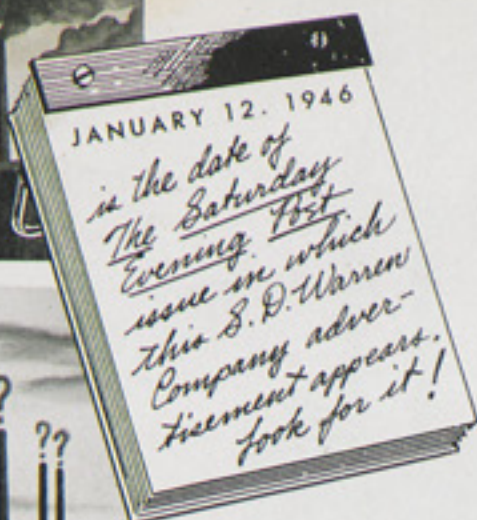 JANUARY 12. 1946
is the date of
The Saturday
Evening Post
issue in which
this S. D. Warren
Company adver-
tisement appears.
Look for it!
?
??